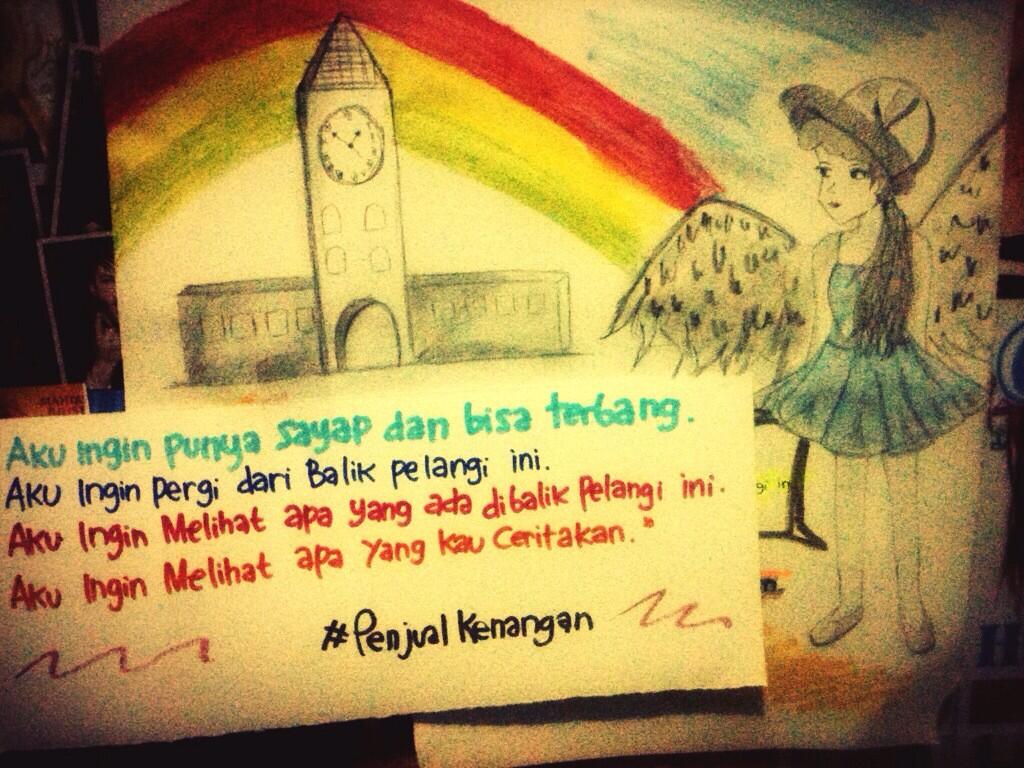 Aku Ingin punya sayap dan bisa terbang.
Aku Ingin pergi dari Balik pelangi ini.
Aku Ingin Melihat apa yang ada dibalik Pelangi ini.
Aku Ingin Melihat apa yang kau Ceritakan."
#Penjual Kenangan
gi in